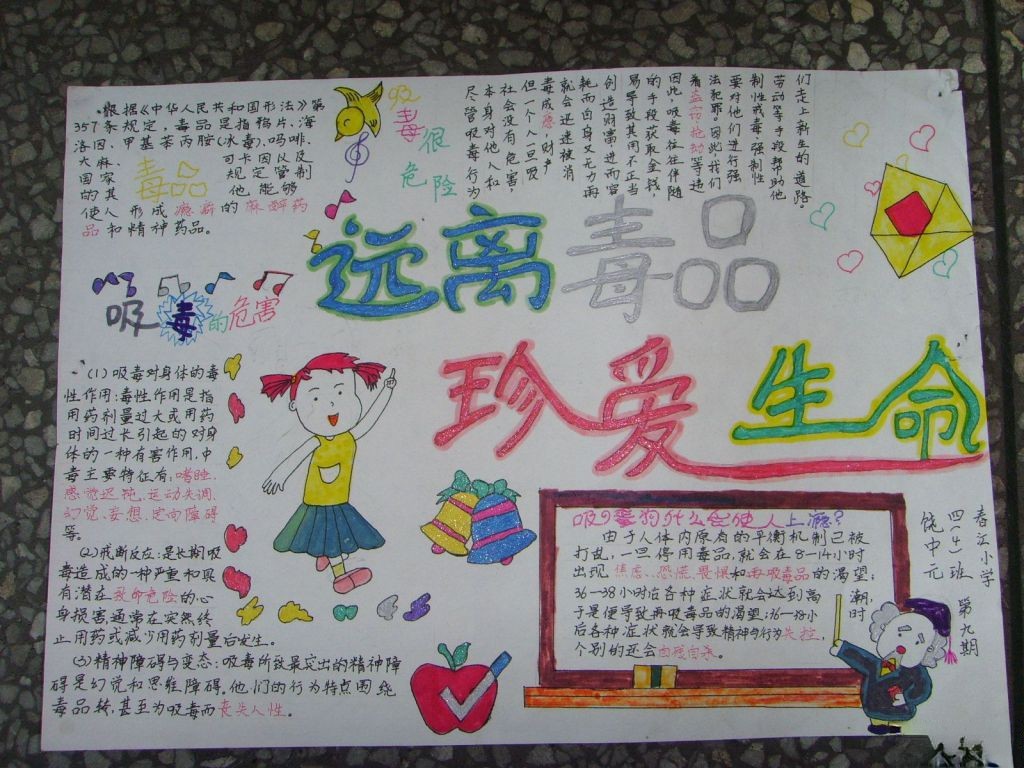 根据《中华人民共和国刑法》第
357条规定，毒品是指鸦片、海
洛因、甲基苯丙胺(冰毒)、吗啡、
大麻、可卡因以及
国家规定管制
的其他能够
使人形成瘾癖的麻醉药
品和精神药品。
毒品
吸毒很
危险
尽管吸毒行为
本身对他人和
社会没有危害，
但一个人一旦吸
毒成瘾，财产
就会迅速被消
耗而自身又无力再
创造财富进而容
易导致其用不正当
的手段获取金钱，
因此，吸毒往往伴随
着盗窃抢劫等违
法犯罪。因此我们
要对他们进行强
制性戒毒，强制性
劳动等手段帮助他
们走上新生的道路。
远离毒品
珍爱生命
吸毒的危害
(1)吸毒对身体的毒
性作用：毒性作用是指
用药剂量过大或用药
时间过长引起的对身
体的一种有害作用，中
毒主要特征有：嗜睡、
感觉迟钝、运动失调、
幻觉、妄想、定向障碍
等。
(2)戒断反应：是长期吸
毒造成的一种严重和具
有潜在致命危险的心
身损害，通常在突然终
止用药或减少用药剂量后发生。
(3)精神障碍与变态：吸毒所致最突出的精神障
碍是幻觉和思维障碍。他们的行为特点围绕
毒品转，甚至为吸毒而丧失人性。
吸毒为什么会使人上瘾？
由于人体内原有的平衡机制已被
打乱，一旦停用毒品，就会在8—14小时
出现焦虑、恐慌、畏惧和再吸毒品的渴望；
36—38小时后各种症状就会达到高潮，
于是便导致再吸毒品的渴望；36—38小时
后各种症状就会导致精神与行为失控，
个别的还会自残自杀。
春江小学
四(4)班
饶中元
第九期